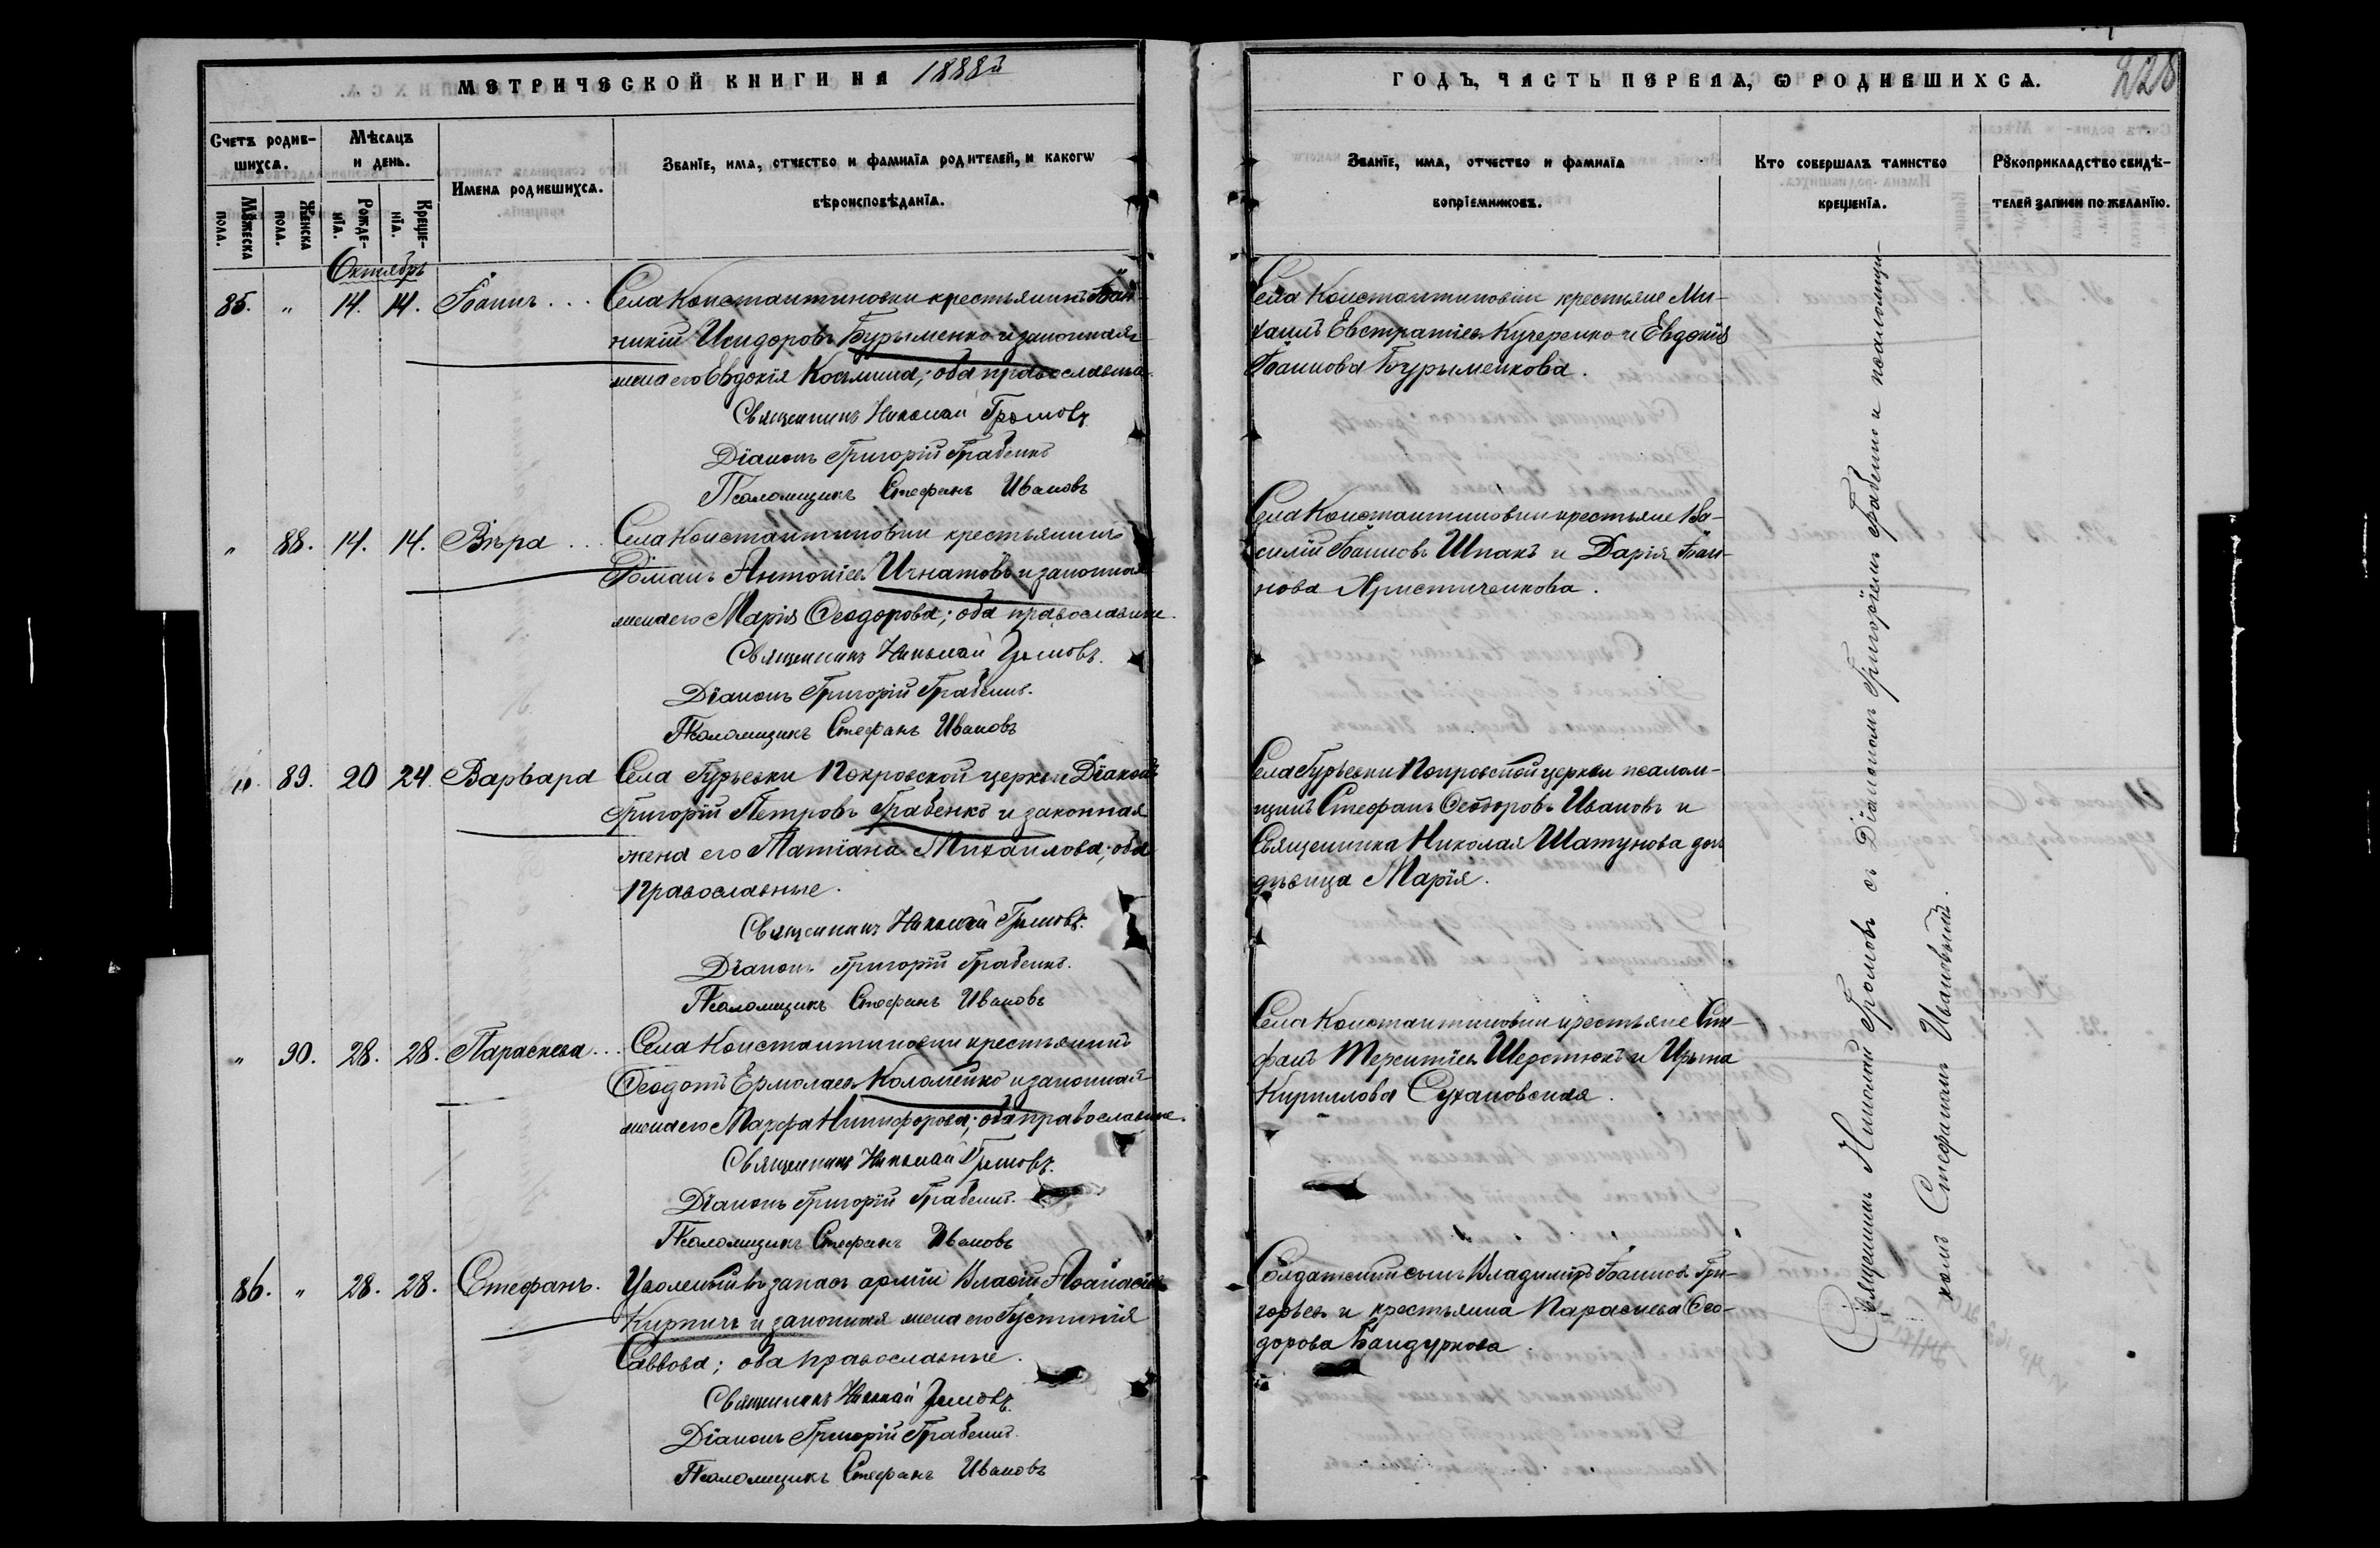 МЕТРИЧЕСКОЙ КНИГИ НА 1888й
ГОДЪ, ЧАСТЬ ПЕРВАЯ, Ѡ РОДИВШИХСѦ.
228
Счетъ родив-
шихсѧ.
Мѣсѧцъ
и день.
Имена родившихсѧ.
Званїе, имѧ, отчество и фамилїѧ родителей, и какогѡ
вѣроисповѣданїѧ.
Мꙋжеска
пола.
Женска
пола.
Рожде-
нїѧ.
Креще-
нїѧ.
Званїе, имѧ, отчество и фамилїѧ
воспрїемниковъ.
Кто совершалъ таинство
крещенїѧ.
Рꙋкоприкладство свидѣ-
телей записи по желанїю.
Октябрь
85. " 14. 14. Іоаннъ... Села Константиновки крестьянинъ Іоан-
никій Исидоровъ Бурыменко и законная
жена его Евдокія Косьмина; оба православные.
Священникъ Николай Громовъ
Діаконъ Григорій Грабенко
Псаломщикъ Стефанъ Ивановъ
Села Константиновки крестьяне Ми-
хаилъ Евстратіевъ Кучеренко и Евдокія
Іоаннова Бурыменкова.
" 88. 14. 14. Вѣра... Села Константиновки крестьянинъ
Романъ Антоніевъ Игнатовъ и законная
жена его Марія Ѳеодорова; оба православные.
Священникъ Николай Громовъ.
Діаконъ Григорій Грабенко.
Псаломщикъ Стефанъ Ивановъ
Села Константиновки крестьяне Ва-
силій Іоанновъ Шпакъ и Дарія Іоан-
нова Христиченкова.
" 89. 20 24 Варвара Села Гурьевки Покровской церкви Діаконъ
Григорій Петровъ Грабенко и законная
жена его Татіана Михаилова; оба
православные.
Священникъ Николай Громовъ.
Діаконъ Григорій Грабенко.
Псаломщикъ Стефанъ Ивановъ
Села Гурьевки Покровской церкви псалом-
щикъ Стефанъ Ѳеодоровъ Ивановъ и
Священника Николая Шатунова дочь
дѣвица Марія.
" 90. 28. 28. Параскева... Села Константиновки крестьянинъ
Ѳеодотъ Ермолаевъ Коломейко и законная
жена его Марфа Никифорова; оба православные.
Священникъ Николай Громовъ.
Діаконъ Григорій Грабенко.
Псаломщикъ Стефанъ Ивановъ
Села Константиновки крестьяне Сте-
фанъ Терентіевъ Шерстюкъ и
Кириллова Сухановская.
86. " 28. 28. Стефанъ. Уволенный въ запасъ арміи Власій Аѳанасіевъ
Кирпичъ и законная жена его Іустинія
Саввова; оба православные.
Священникъ Николай Громовъ.
Діаконъ Григорій Грабенко.
Псаломщикъ Стефанъ Ивановъ
Солдатскій сынъ Владиміръ Іоанновъ Гри-
горьевъ и крестьянка Параскева Ѳео-
дорова Бандуркова.
Священникъ Николай Громовъ съ Діакономъ Григоріемъ Грабенко и псаломщи-
комъ Стефаномъ Ивановымъ.